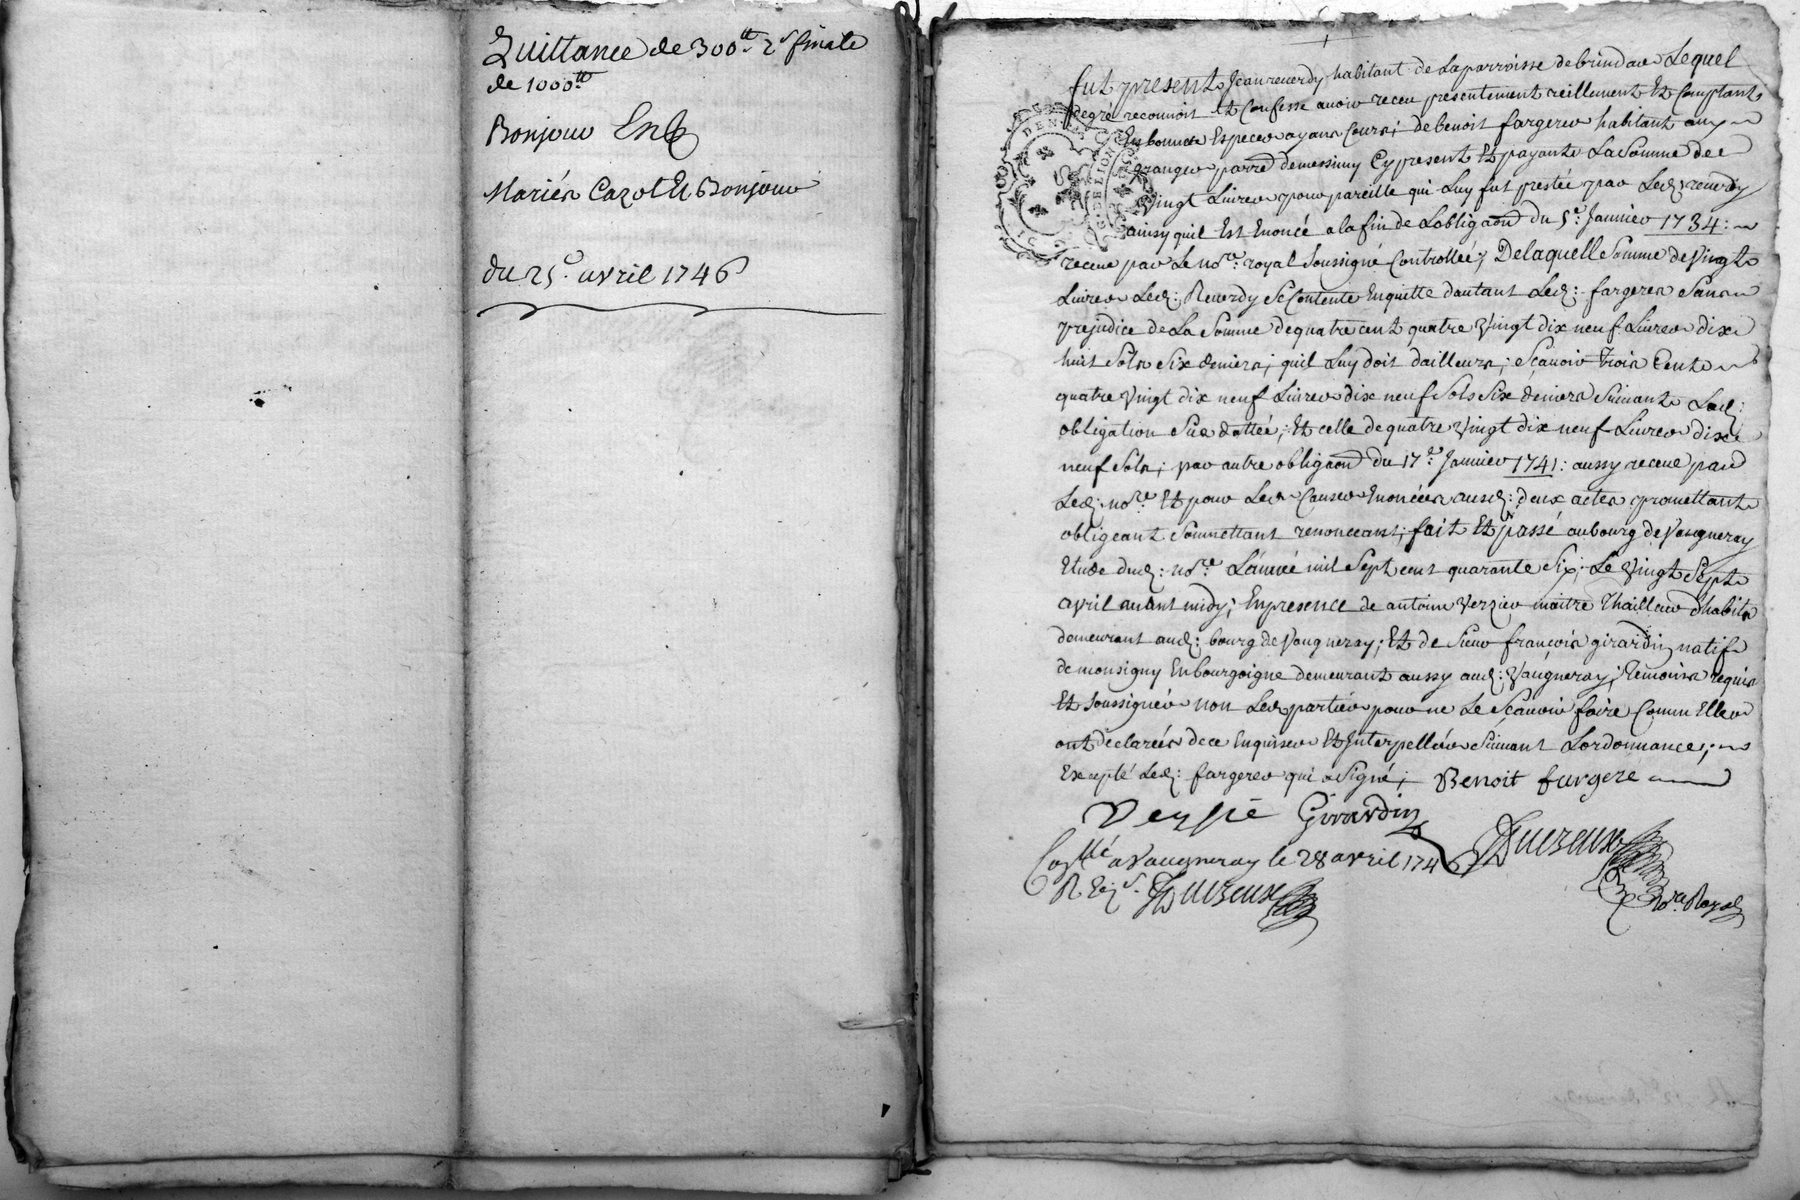 Quittance de 300tt 2e finale
de 1000tt
Bonjour
Mariés Cazot Et Bonjour
du 25e. avril 1746
fut present Jean reverdy habitant de Laparroisse de brindas Lequel
degré reconnoit et Confesse avoir receu presentement réellement Et Comptant
En bonnes Especes ayans Cours; de benoit fargeres habitant aux
granges parre demessimy Cy present Et payant La Somme de
Vingt Livres pour pareille qui Luy fut prestée par Led: reverdy
ainsy quil Est Enoncé a la fin de Lobligaon du 5e: Janvier 1734:
receue par Le nore: royal Soussigné Controllée; De laquelle Somme de Vingt
Livres Led: Reverdy Se Contente Enquitte dautant Led: fargeres Sans
prejudice de La Somme de quatre cent quatre Vingt dix neuf Livres dix
huit Sols Six deniers; quil Luy doit dailleurs; Scavoir trois Cent
quatre Vingt dix neuf Livres dix neuf Sols Six deniers Suivant Lad:
obligation Sus dattée; Et celle de quatre Vingt dix neuf Livres dix
neuf Sols; par autre obligaon du 17e: Janvier 1741: aussy receue par
Led: nore Et pour Les Causes Enoncées ausd: deux actes promettant
obligeant Soumettant renonceant; fait Et passé au bourg de Vaugneray
Etude dud: nore: L'année mil Sept cent quarante Six; Le Vingt Sept
avril avant midy; En presence de antoine Verzier maitre Thailleur d'habits
demeurant aud: bourg de Vaugneray; Et de Sieur françois girardin natif
de monsigny En bourgoigne demeurant aussy aud: Vaugneray; Temoins requis
Et Soussignés non Les parties pour ne Le Scavoir faire Comm Elles
ont declarées de ce Enquises Et Interpellées Suivant Lordonnance;
Excepté Led: fargeres qui a Signé; Benoit furgere
Versie Girardin
Conllé a Vaugneray le 28 avril 1746
nore Royal